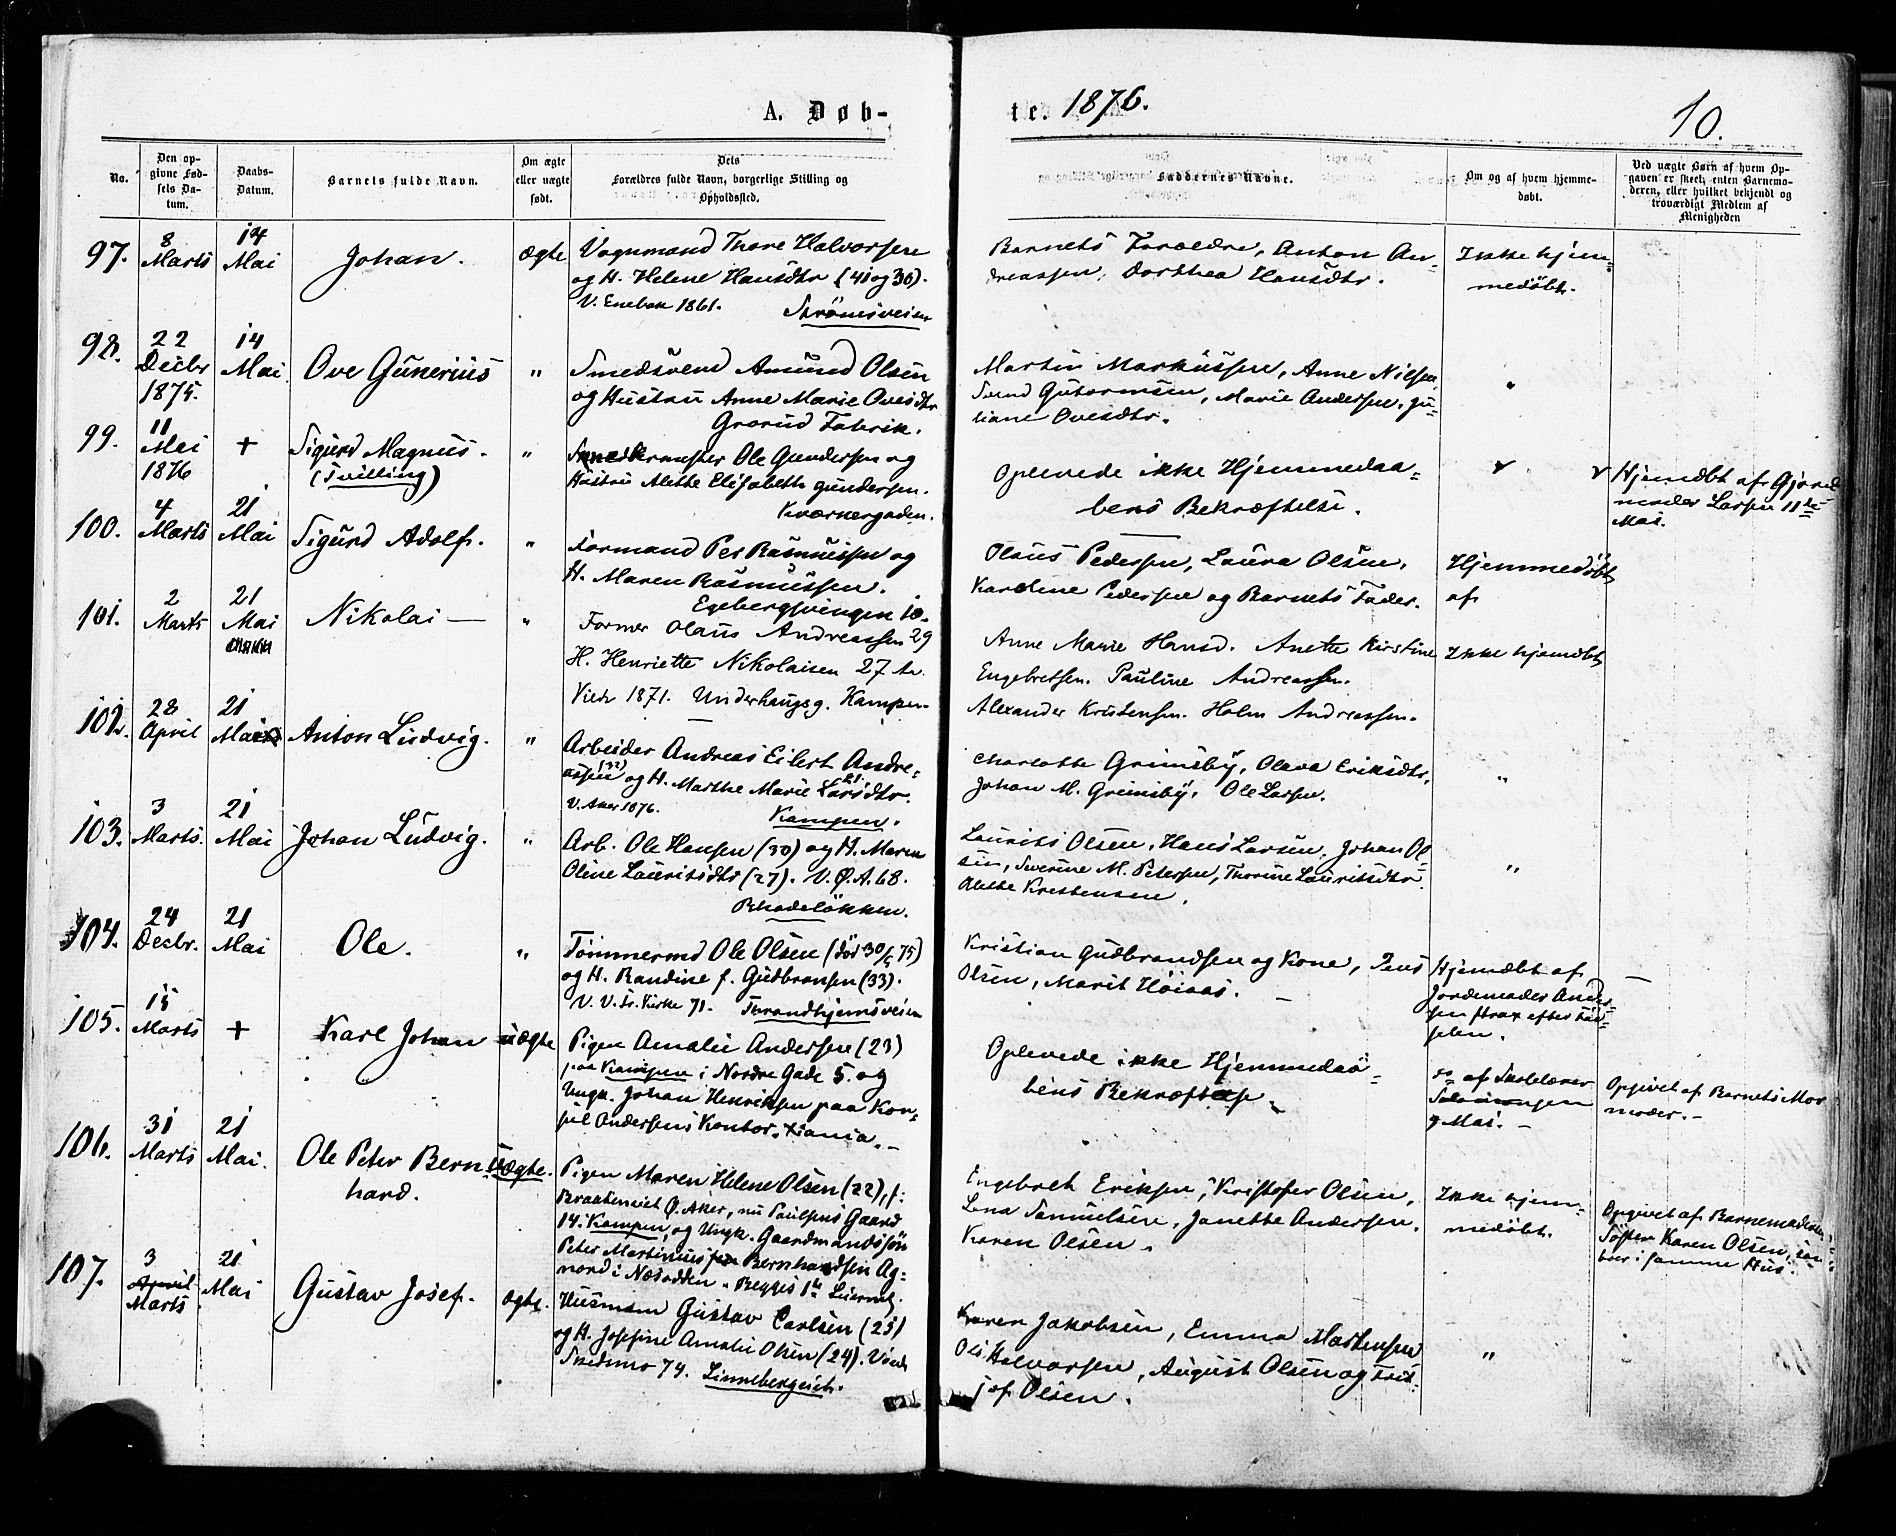 A. Døb-
te. 1876.
10.
No.
Den op-
givne Fød-
sels Da-
tum.
Daabs-
Datum.
Barnets fulde Navn.
Om ægte
eller uægte
født.
Dets
Forældres fulde Navn, borgerlige Stilling og
Opholdssted.
Faddernes Navne.
Om og af hvem hjemme-
døbt.
Ved uægte Børn af hvem Op-
gaven er skeet, enten Barnemo-
deren, eller hvilket bekjendt og
troværdigt Medlem af
Menigheden
97.
8
Marts
14
Mai
Johan.
ægte
Vognmand Thore Halvorsen
og H. Helene Hansdtr (41 og 36).
V. Enebak 1861.
Strømsveien
Barnets Forældre, Anton An-
dreassen, Dorthea Hansdtr.
Ikke hjem-
medøbt.
98.
22
Decbr
1875.
14
Mai
Ove Gunerius
"
Smedsvend Amund Olsen
og Hustru Anne Marie Ovesdtr
Grorud Fabrik.
Martin Markussen, Anne Nilsen
Svend Gutormsen, Marie Andersen, Ju-
liane Ovesdtr.
"
99.
11
Mai
1876
+
Sigurd Magnus.
(Tvilling)
"
Smedkermester Ole Gundersen og
Hustru Alethe Elisabeth Gundersen.
Kværnergaden.
Oplevede ikke Hjemmedaa-
bens Bekræftelse.
Hjemdbt af Gjord-
moder Larsen 11te
Mai.
100.
4
Marts
21
Mai
Sigurd Adolf.
"
Formand Per Rasmussen og
H. Maren Rasmussen.
Egebergsvingen 10.
Olaus Pedersen, Laura Olsen,
Karoline Pedersen og Barnets Fader.
Hjemmedøbt
af
101.
2
Marts
21
Mai
Nikolai —
"
Former Olaus Andreassen 29
H. Henriette Nikolaisen 27 Ar
Viede 1871. Underhaugsg. Kampen.
Anne Marie Hansd. Anette Kirstine
Engebretsen. Pauline Andreassen.
Alexander Kristensen. Holm Andreassen.
Ikke hjemdbt
102.
28
April
21
Mai
Anton Ludvig.
"
Arbeider Andreas Eilert Andre-
assen (32) og H. Marthe Marie Larsdtr. 21
V. Aker 1876.
Kampen.
Charlotte Grimsby, Olava Eriksdtr,
Johan M. Grimsby, Ole Larsen.
"
103.
3
Marts.
21
Mai
Johan Ludvig.
"
Arb. Ole Hansen (30) og H. Maren
Oline Lauritsdtr (27). V. Ø. A. 68.
Rhodeløkken.
Laurits Olsen, Hans Larsen, Johan Ol-
sen, Severine M. Petersen, Thorine Lauritsdtr
Alethe Kristensen.
"
104.
24
Decbr.
21
Mai
Ole.
"
Tømmermd Ole Olsen (død 30/5 75)
og H. Randine f. Gudbransen (33).
V. V. Fr. Kirke 71.
Throndhjemsveien
Kristian Gudbrandsen og Kone, Jens
Olsen, Marit Høiaas.
Hjemdbt af
Jordemoder Ander-
sen strax efter Fød-
selen.
105.
15
Marts
+
Karl Johan
uægte
Pigen Amalie Andersen (23)
paa Kampen i Nordre Gade 5. og
Ungk. Johan Henriksen paa Kon-
sul Andersens Kontor, Xiania. —
Oplevede ikke Hjemmedaa-
bens Bekræftelse.
do af Skolelærer
9 Mai. —
Opgivet af Barnets Mor-
moder. —
106.
31
Marts
21
Mai.
Ole Peter Bern-
hard.
uægte.
Pigen Maren Helene Olsen (22), f:
Braatenviet Ø. Aker, nu Paulsens Gaard
14. Kampen, og Ungk. Gaardmandssøn
Peter Martinius Bernhardsen Ag-
nord i Næsodden. Begges 1te Leierml.
Engebret Eriksen, Kristofer Olsen,
Lena Samuelsen, Janette Andersen.
Karen Olsen.
Ikke hjem-
medøbt.
Opgivet af Barnemoderens
Søster Karen Olsen, som
boer i samme Hus.
107.
3
April
Marts
21
Mai
Gustav Josef.
ægte.
Husmam Gustav Carlsen (25)
og H. Josefine Amalie Olsen (24). Viede
Skedsmo 74. Linnebergeie.
Karen Jakobsen, Emma Martensen
Ole Halvorsen, August Olsen og Frit-
jof Olsen.
"